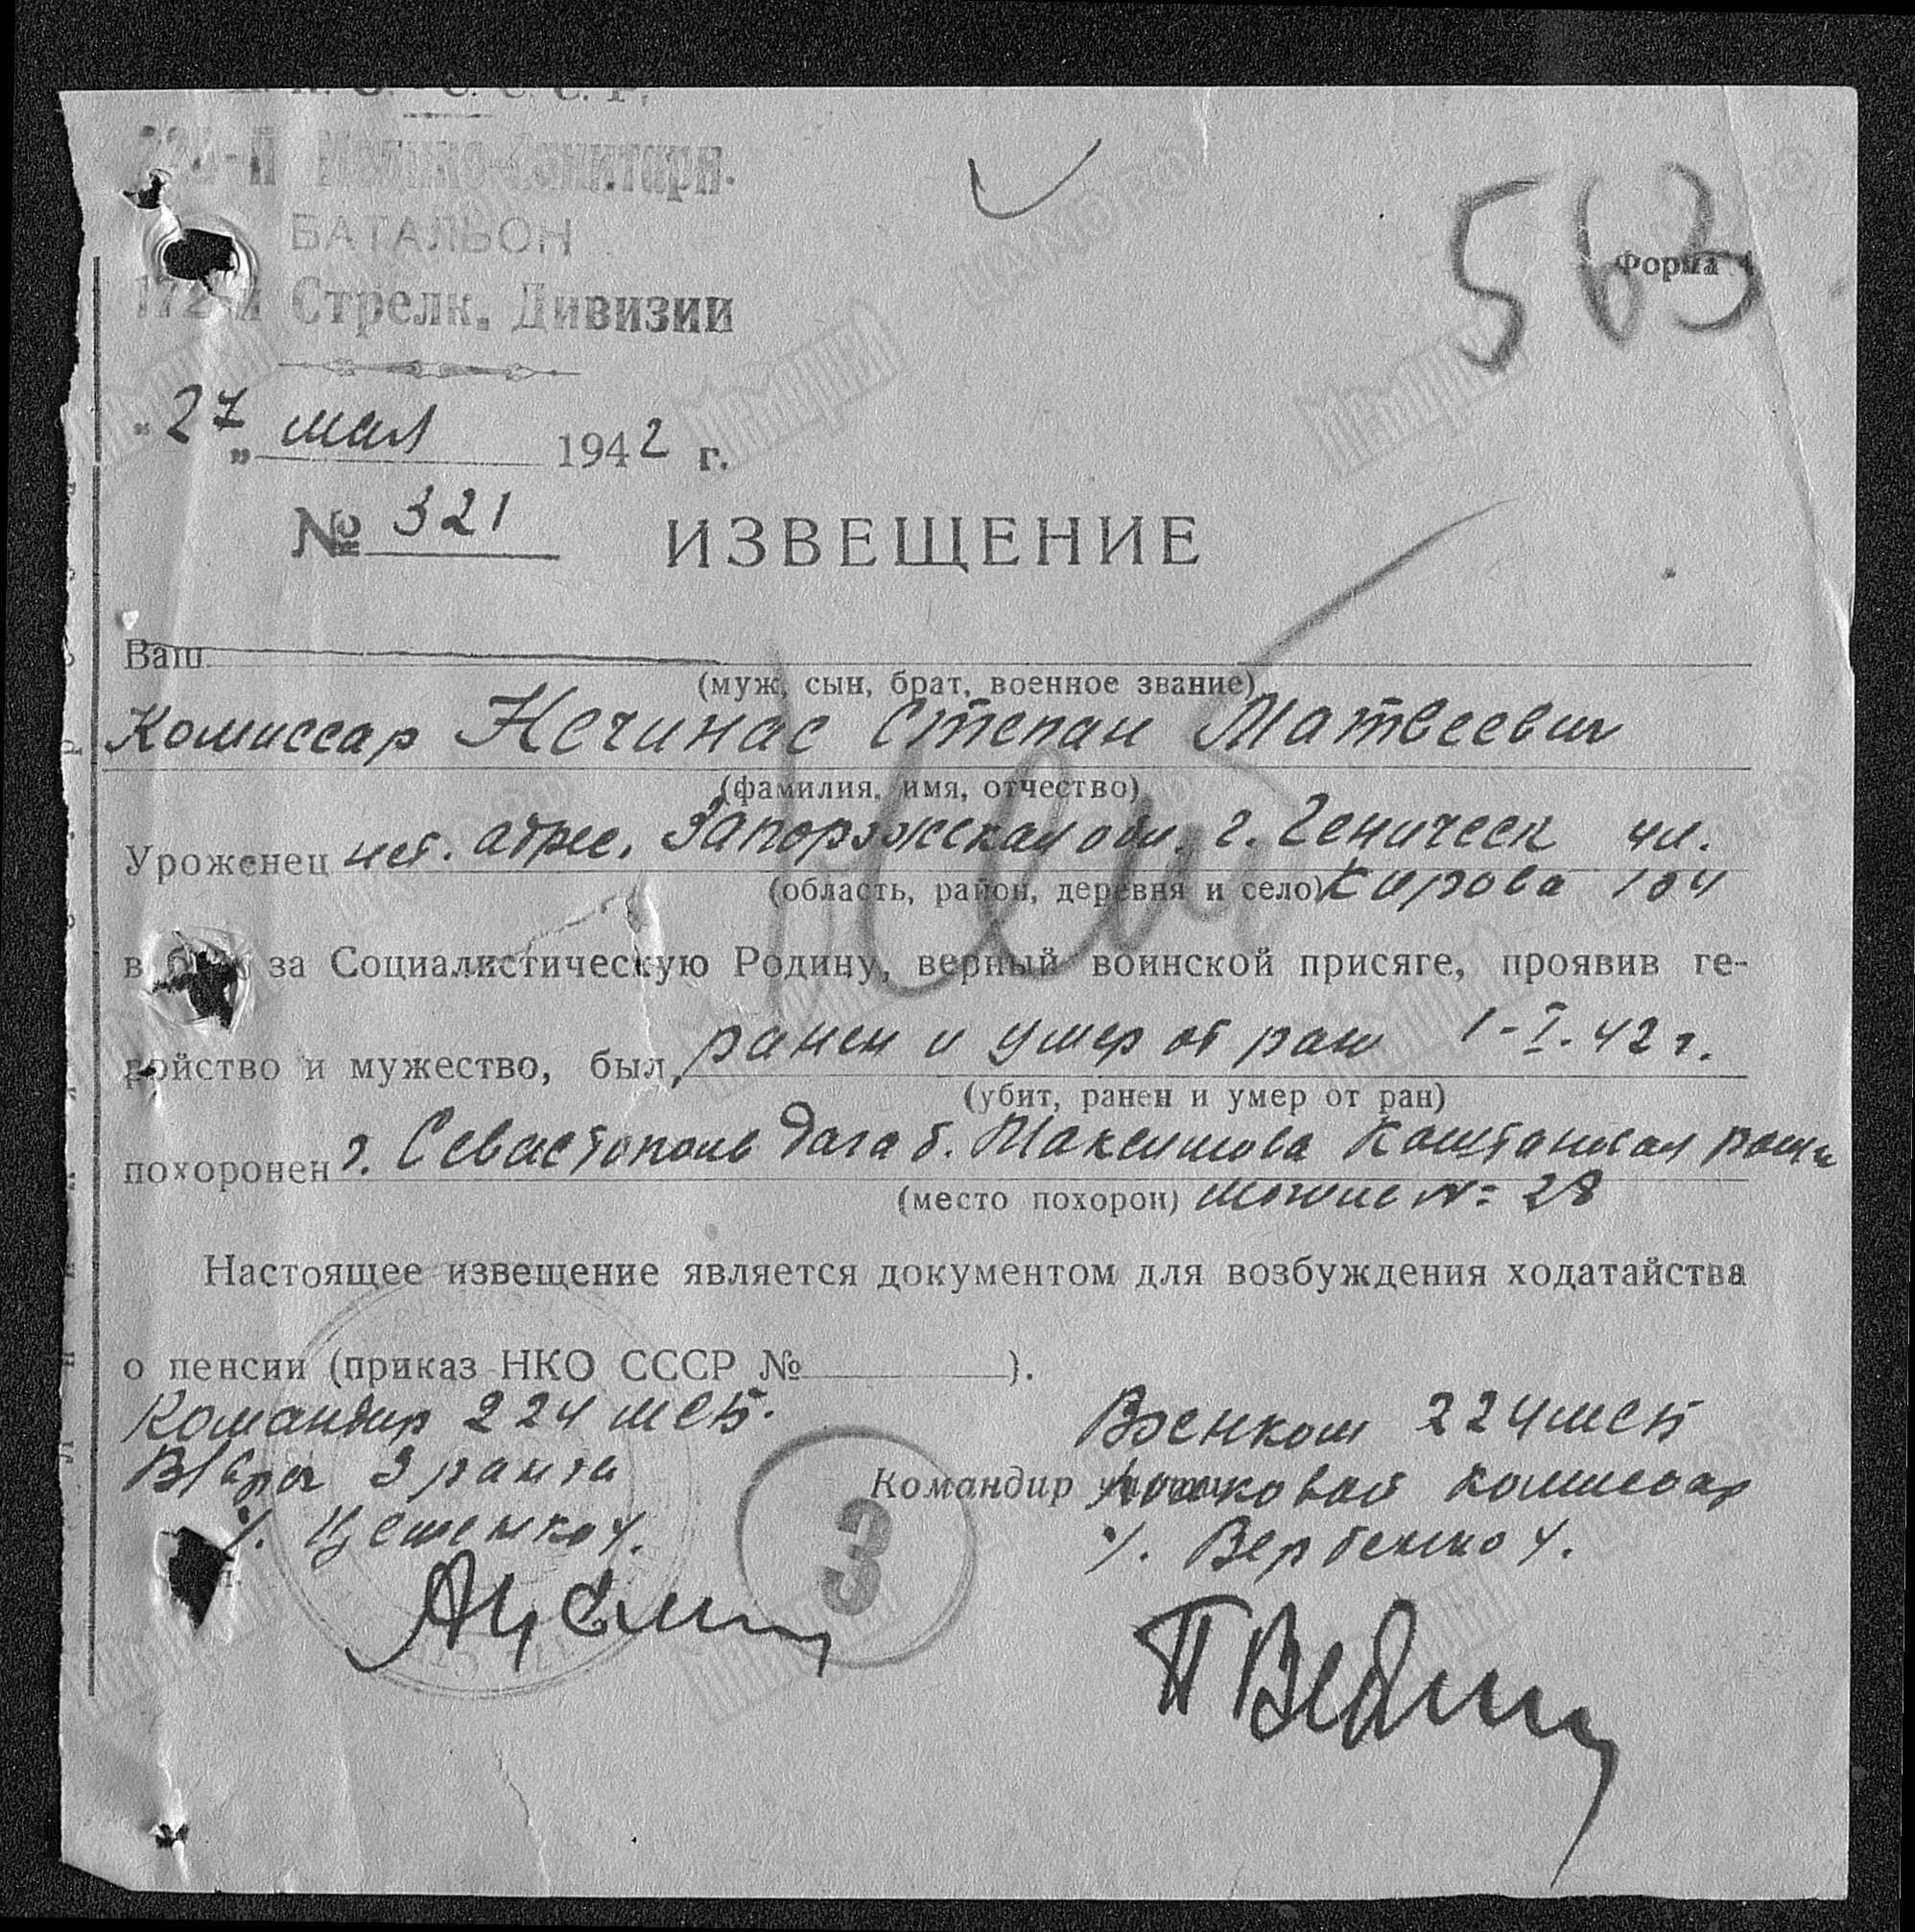 Н. К. О. С. С. С. Р.
224-й Медико-Санитарн.
БАТАЛЬОН
172-й Стрелк. Дивизии
Форма 1
563
"27" мая 1942 г.
№ 321
ИЗВЕЩЕНИЕ
Ваш
(муж, сын, брат, военное звание)
Комиссар Нечинас Степан Матвеевич
(фамилия, имя, отчество)
Уроженец адрес. Запорожская обл. г. Геническ ул.
(область, район, деревня и село) Кирова 104
в за Социалистическую Родину, верный воинской присяге, проявив ге-
ройство и мужество, был ранен и умер от ран 1-I.42 г.
(убит, ранен и умер от ран)
похоронен г. Севастополь дача б. Максимова Каштановая роща
(место похорон) № 28
Настоящее извещение является документом для возбуждения ходатайства
о пенсии (приказ НКО СССР № ).
Командир 224 МСБ.
Военком 224 МСБ
В/врач 3 ранга
Командир
комиссар
3